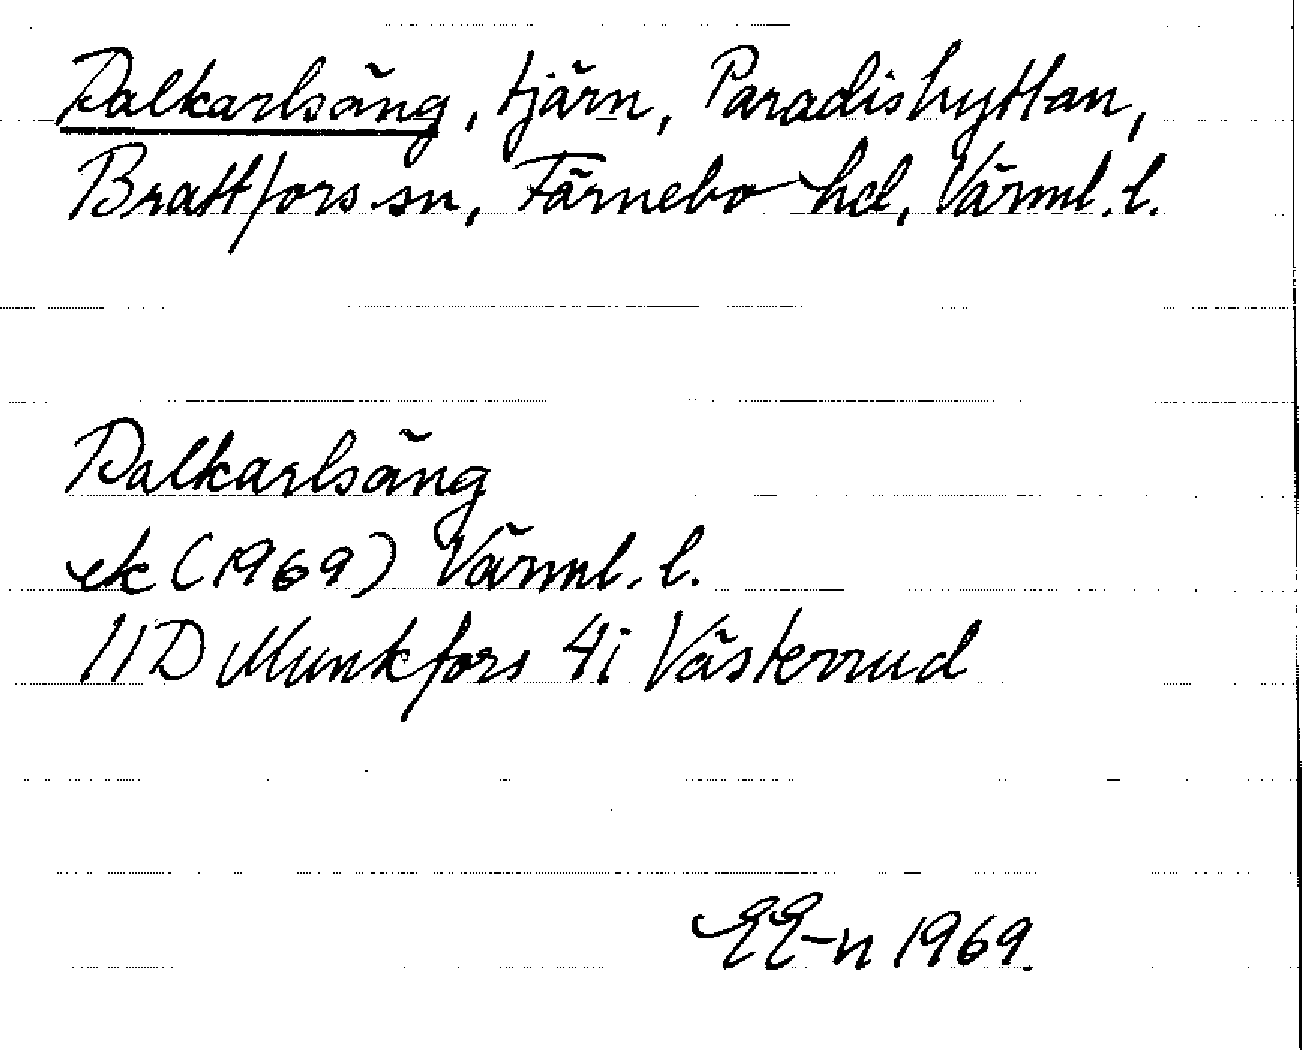 Dalkarlsäng, tjärn, Paradishyttan,
Brattfors sn, Färnebo hd, Värml. l.
Dalkarlsäng
ek (1969) Värml. l.
11D Munkfors 4i Västerrud
1969.